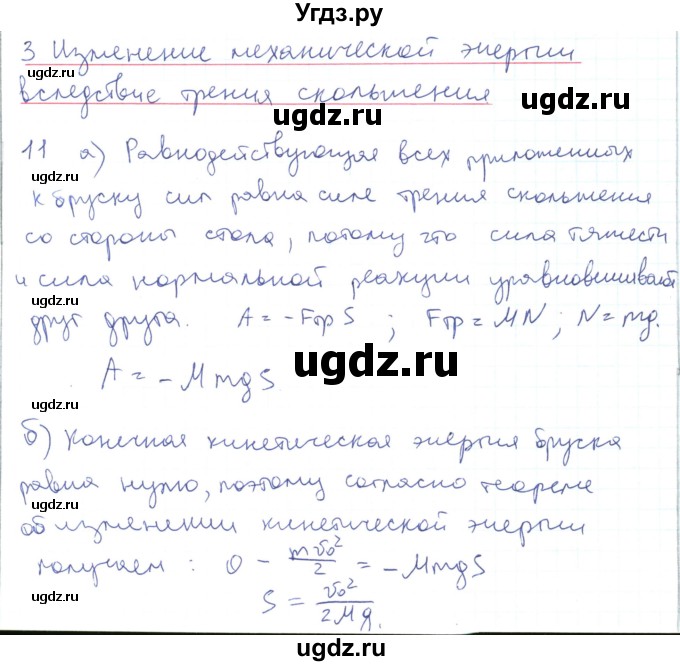 Угдз.ру
3 Изменение механической энергии
ugdz.ru
вследствие трения скольжения
ugdz.ru
ugdz.ru
11 а) Равнодействующая всех приложенных
ugdz.ru
к бруску сил равна силе трения скольжения
со стороны стола, потому что сила тяжести
ugdz.ru
и сила нормальной реакции уравновешивают
ugdz.ru
друг друга. A = -Fтр S ; Fтр = MN ; N = mg.
ugdz.ru
ugdz.ru
A = - MmgS
ugdz.ru
б) Конечная кинетическая энергия бруска
ugdz.ru
равна нулю, поэтому согласно теореме
ugdz.ru
об изменении кинетической энергии
ugdz.ru
получаем : 0 - mv₀²/2 = - MmgS
ugdz.ru
S = v₀²/2Mg.
ugdz.ru
ugdz.ru